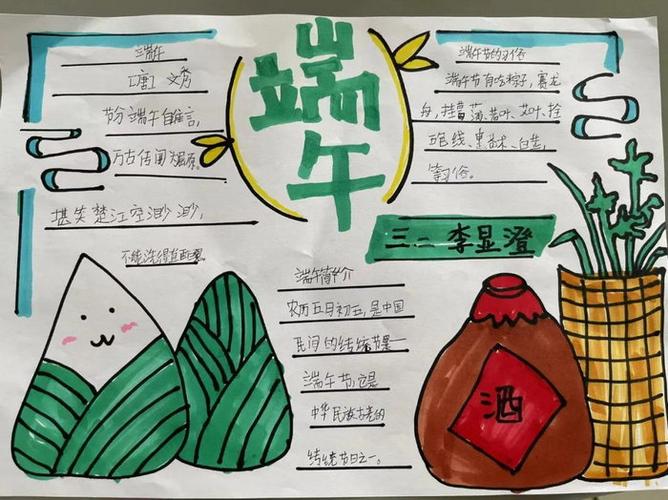 端午
端午
[唐] 文秀
节分端午自谁言,
万古传闻为屈原。
堪笑楚江空渺渺,
不能洗得直臣冤
端午节的习俗
端午节有吃粽子,赛龙
舟,挂菖蒲、艾叶、拴
五色线、白芷,
等习俗。
三二 李显澄
端午简介
农历五月初五,是中国
民间的传统节日
端午节也是
中华民族古老的
传统节日之一。
酒